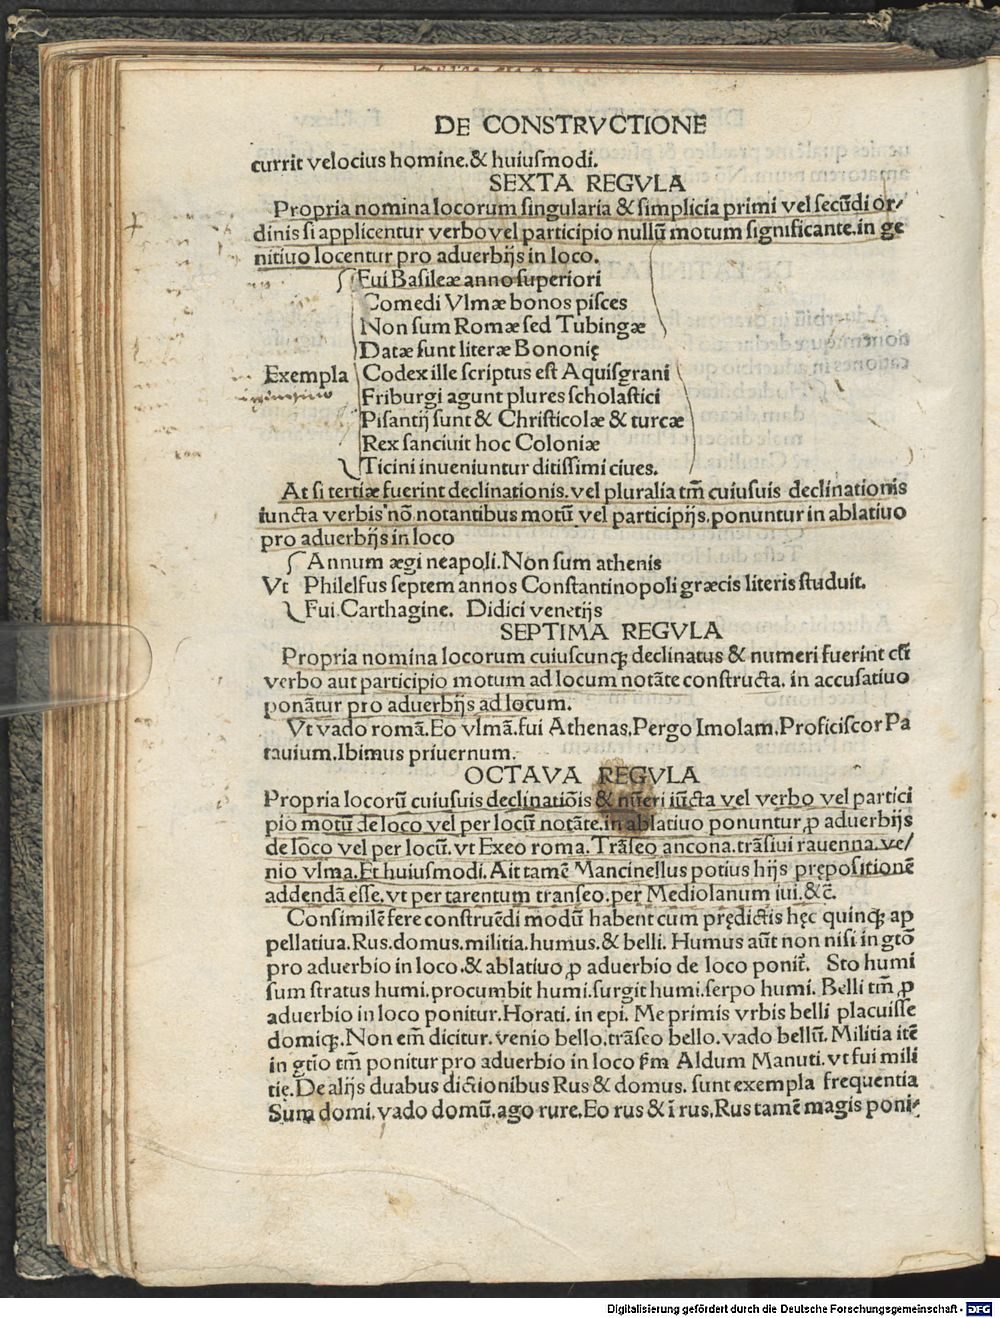 DE CONSTRVCTIONE
currit velocius homine.& huiusmodi.
SEXTA REGVLA
Propria nomina locorum singularia & simplicia primi vel secūdi or/
dinis si applicentur verbo vel participio nullū motum significante.in ge
nitiuo locentur pro aduerbijs in loco.
Fui Basileæ anno superiori
Comedi Vlmæ bonos pisces
Non sum Romæ sed Tubingæ
Datæ sunt literæ Bononię
Exempla Codex ille scriptus est Aquisgrani
Friburgi agunt plures scholastici
Pisantij sunt & Christicolæ & turcæ
Rex sanciuit hoc Coloniæ
Ticini inueniuntur ditissimi ciues.
At si tertiæ fuerint declinationis.vel pluralia tm̄ cuiusuis declinationis
iuncta verbis nō notantibus motū vel participijs.ponuntur in ablatiuo
pro aduerbijs in loco
Annum ægi neapoli.Non sum athenis
Vt Philelfus septem annos Constantinopoli græcis literis studuit.
Fui Carthagine. Didici venetijs
SEPTIMA REGVLA
Propria nomina locorum cuiuscunqꝫ declinatus & numeri fuerint cū
verbo aut participio motum ad locum notāte constructa. in accusatiuo
ponātur pro aduerbijs ad locum.
Vt vado romā.Eo vlmā.fui Athenas.Pergo Imolam.Proficiscor Pa
tauium.Ibimus priuernum.
OCTAVA REGVLA
Propria locorū cuiusuis declinatiōis & nūeri iūcta vel verbo vel partici
pio motū de loco vel per locū notāte.in ablatiuo ponuntur ꝓ aduerbijs
de loco vel per locū. vt Exeo roma. Trāseo ancona.trāsiui rauenna.ve/
nio vlma.Et huiusmodi. Ait tamē Mancinellus potius hijs prępositionē
addendā esse. vt per tarentum transeo.per Mediolanum iui.&c̄.
Consimilē fere construēdi modū habent cum prędictis hęc quinqꝫ ap
pellatiua.Rus.domus.militia.humus.& belli. Humus aūt non nisi in gtō
pro aduerbio in loco.& ablatiuo ꝓ aduerbio de loco ponit̄. Sto humi
sum stratus humi.procumbit humi.surgit humi.serpo humi. Belli tm̄ ꝓ
aduerbio in loco ponitur.Horati. in epi. Me primis vrbis belli placuisse
domiqꝫ.Non em̄ dicitur.venio bello.trāseo bello.vado bellū. Militia itē
in gtīo tm̄ ponitur pro aduerbio in loco ẜm Aldum Manuti.vt fui mili
tię.De alijs duabus dictionibus Rus & domus. sunt exempla frequentia
Sum domi.vado domū.ago rure.Eo rus & ī rus.Rus tamē magis poni/
Digitalisierung gefördert durch die Deutsche Forschungsgemeinschaft - DFG